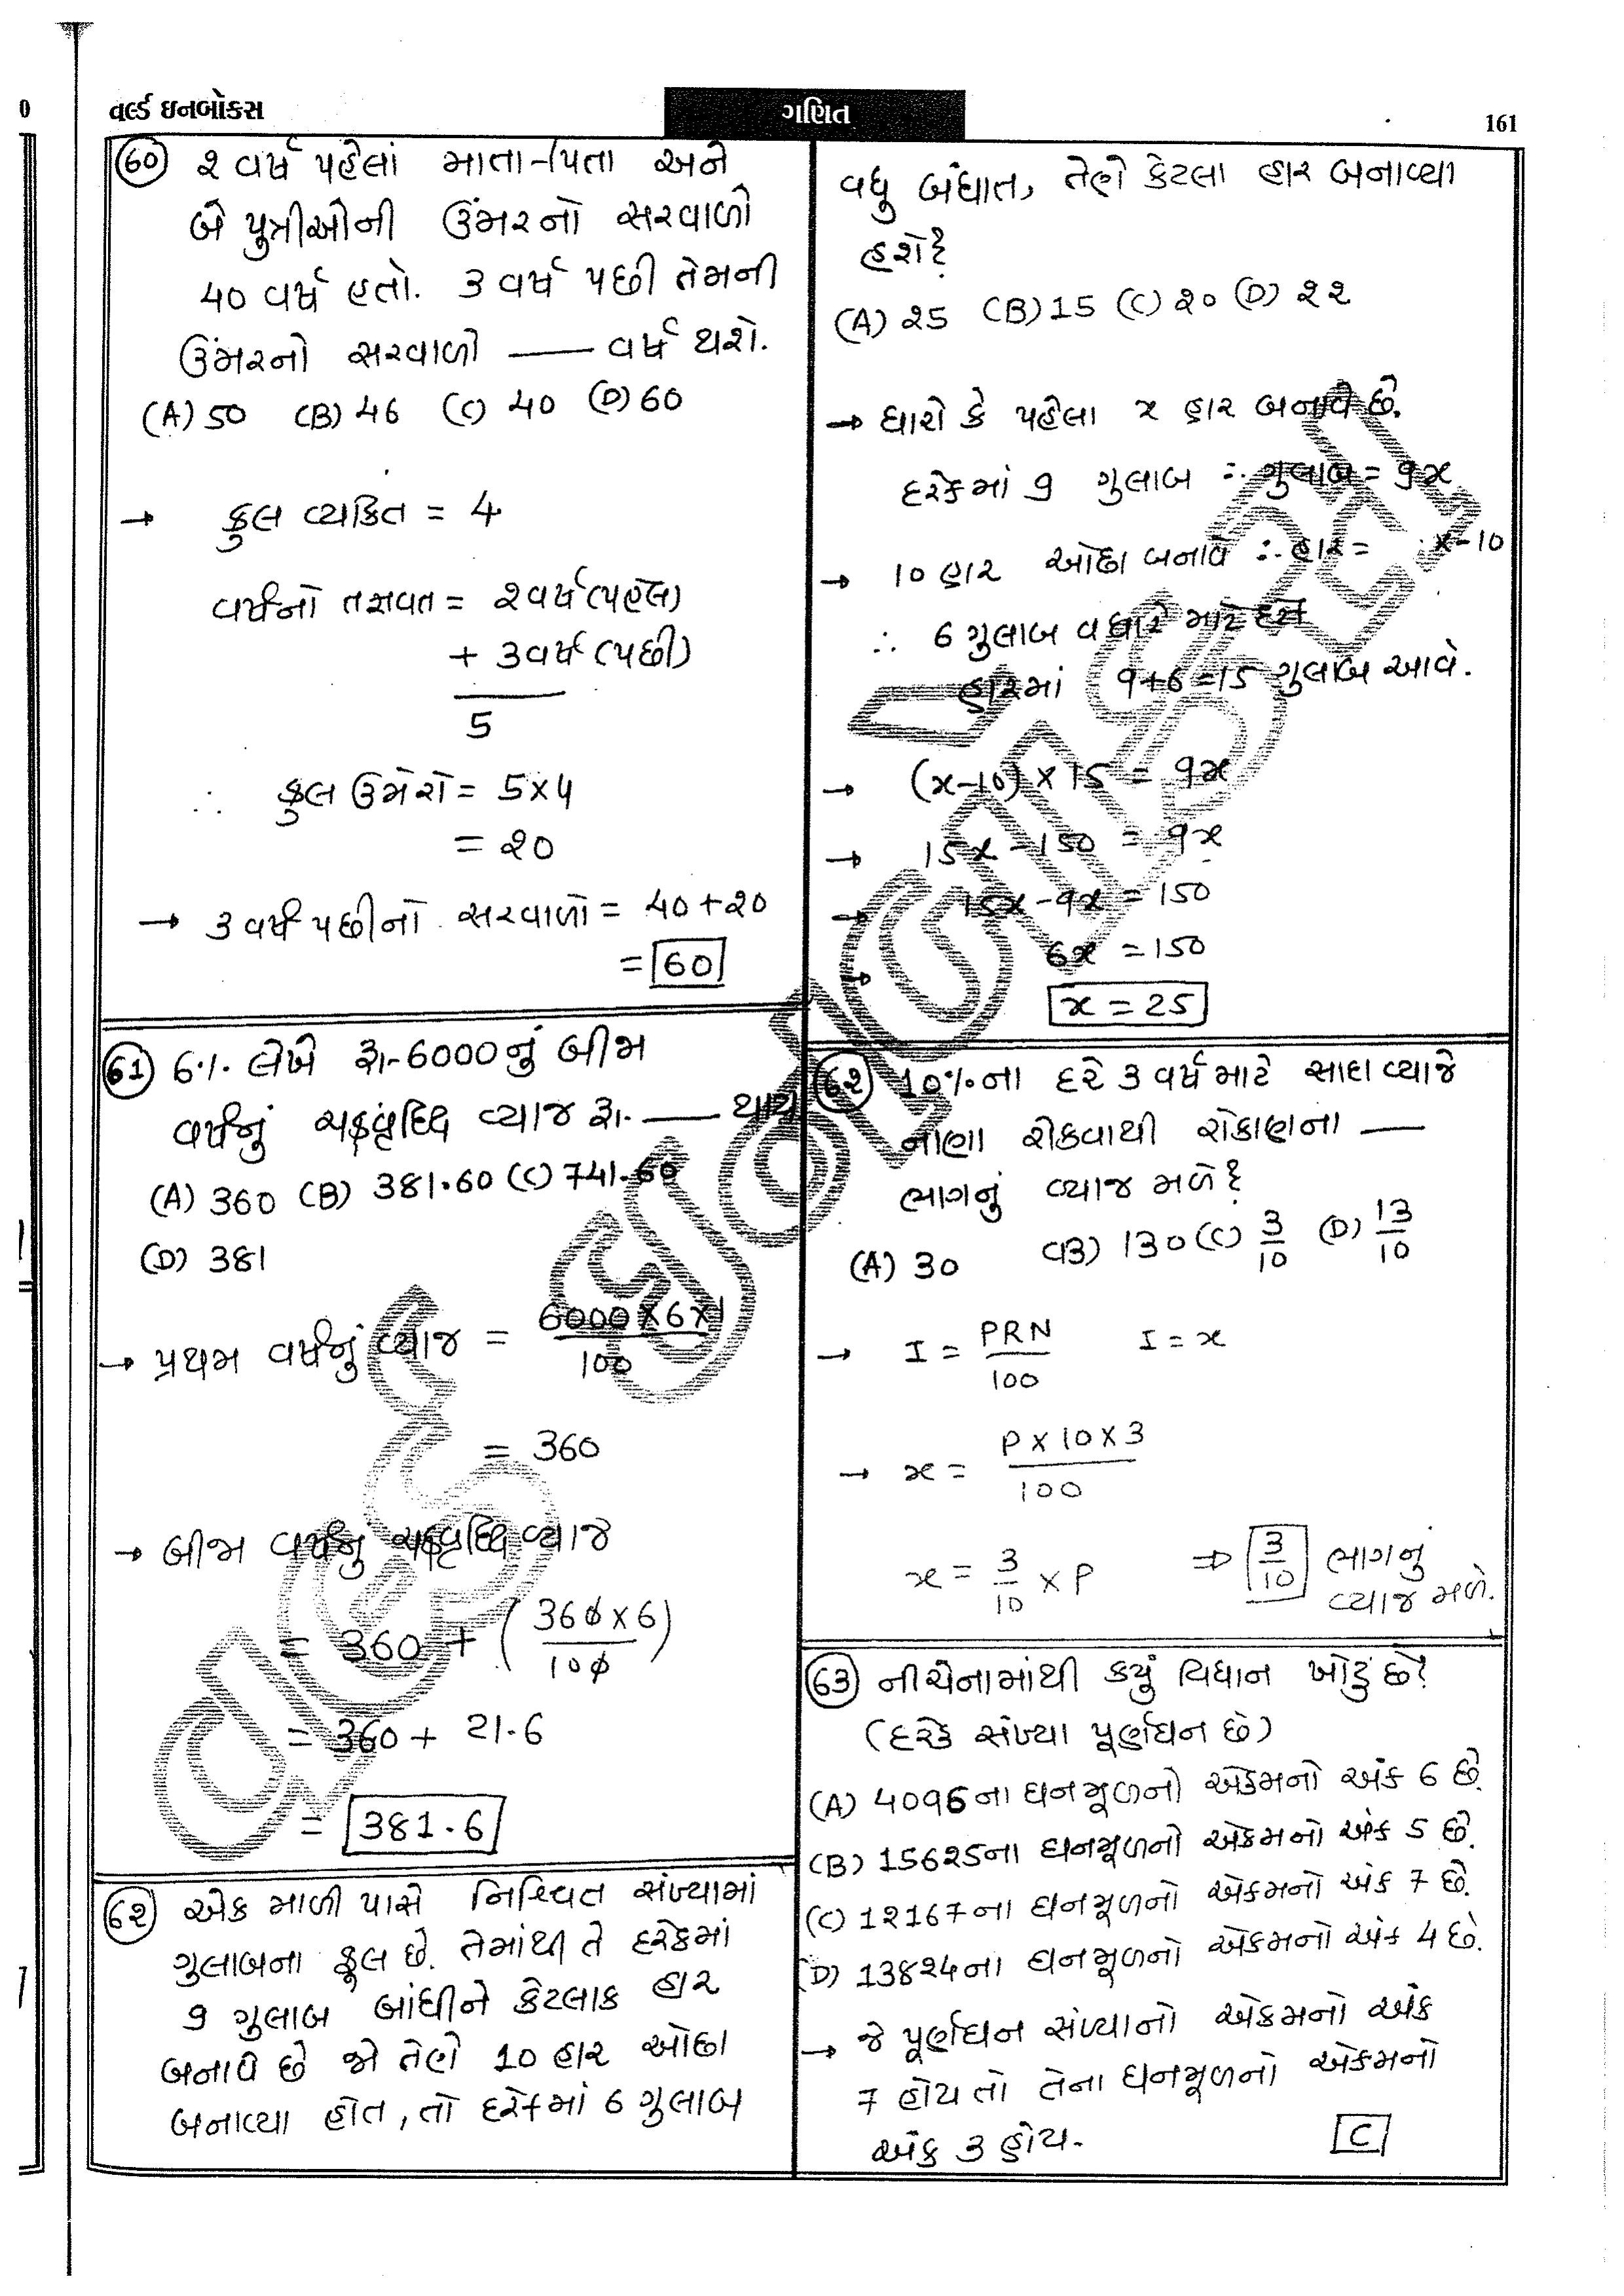 0
વર્લ્ડ ઇનબૉક્સ
ગણિત
161
(60) ૨ વર્ષ પહેલાં માતા-પિતા અને
બે પુત્રીઓની ઉંમરનો સરવાળો
૪૦ વર્ષ હતો. ૩ વર્ષ પછી તેમની
ઉંમરનો સરવાળો ___ વર્ષ થશે.
(A) 50 (B) ૪6 (C) ૪૦ (D) 60
→ કુલ વ્યકિત = 4
વર્ષનો તફાવત = ૨વર્ષ(પહેલા)
+ ૩વર્ષ(પછી)
5
∴ કુલ ઉમેરો = 5×4
= ૨૦
→ ૩ વર્ષ પછીનો સરવાળો = ૪૦+૨૦
= 60
(61) 6·/· લેખે રૂા.-6000નું બીજા
વર્ષનું ચક્રવૃધ્ધિ વ્યાજ રૂા. ___ થાય
(A) 360 (B) 381·60 (C) 741·60
(D) 381
→ પ્રથમ વર્ષનું વ્યાજ = 6000×6×1 / 100
= 360
→ બીજા વર્ષનું ચક્રવૃધ્ધિ વ્યાજ
= 360 + (360×6 / 100)
= 360 + 21·6
= 381·6
(6૨) એક માળી પાસે નિશ્ચિત સંખ્યામાં
ગુલાબના ફૂલ છે. તેમાંથી તે દરેકમાં
9 ગુલાબ બાંધીને કેટલાક હાર
બનાવે છે જો તેણે 10 હાર ઓછા
બનાવ્યા હોત, તો દરેકમાં 6 ગુલાબ
વધુ બંધાત, તેણે કેટલા હાર બનાવ્યા
હશે?
(A) ૨5 (B) 15 (C) ૨૦ (D) ૨૨
→ ધારો કે પહેલા x હાર બનાવે છે.
દરેકમાં 9 ગુલાબ ∴ ગુલાબ = 9x
→ 10 હાર ઓછા બનાવે ∴ હાર = x-10
∴ 6 ગુલાબ વધારે માટે દરેક
હારમાં 9+6=15 ગુલાબ આવે.
→ (x-10)×15 = 9x
→ 15x-150 = 9x
→ 15x-9x = 150
→ 6x = 150
x = 25
(6૨) 10%ના દરે ૩ વર્ષ માટે સાદા વ્યાજે
નાણા રોકવાથી રોકાણના ___
ભાગનું વ્યાજ મળે?
(A) 30 (B) 130 (C) 3/10 (D) 13/10
→ I = PRN / 100 I = x
→ x = P×10×3 / 100
x = 3/10 × P ⇒ 3/10 ભાગનું
વ્યાજ મળે.
(63) નીચેનામાંથી કયું વિધાન ખોટું છે?
(દરેક સંખ્યા પૂર્ણઘન છે)
(A) 4096ના ઘનમૂળનો એકમનો અંક 6 છે.
(B) 156૨5ના ઘનમૂળનો એકમનો અંક 5 છે.
(C) 1૨167ના ઘનમૂળનો એકમનો અંક 7 છે.
(D) 138૨4ના ઘનમૂળનો એકમનો અંક 4 છે.
→ જે પૂર્ણઘન સંખ્યાનો એકમનો અંક
7 હોય તો તેના ઘનમૂળનો એકમનો
અંક ૩ હોય.
C